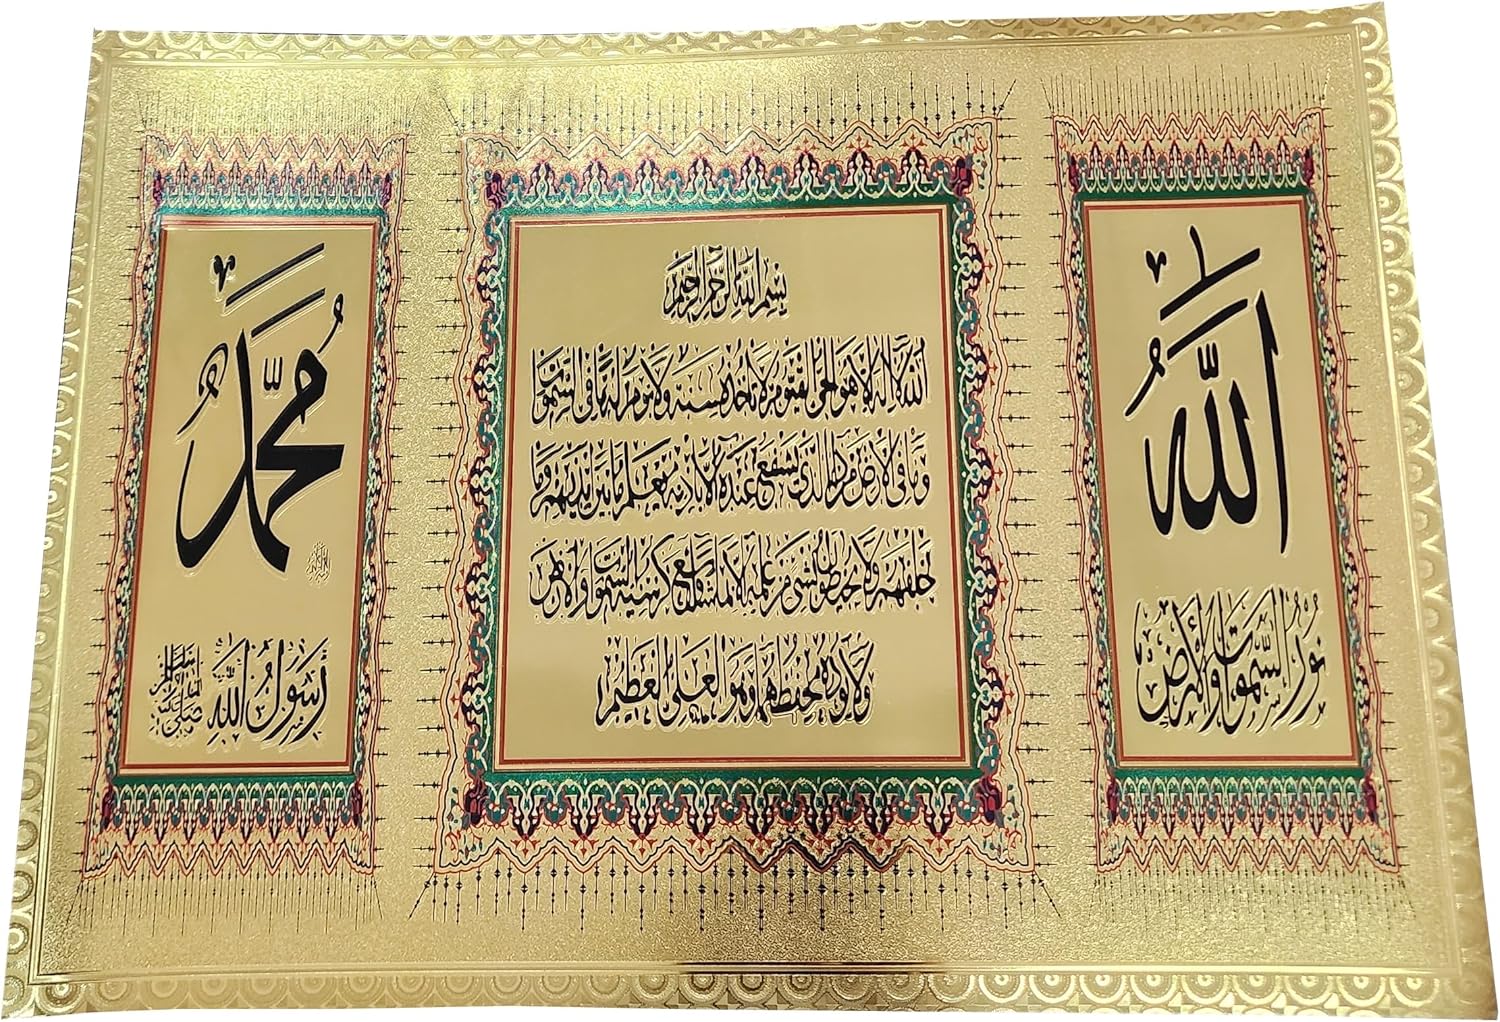 الله
نور السموات والأرض
بسم الله الرحمن الرحيم
الله لا إله إلا هو الحي القيوم لا تأخذه سنة ولا نوم له ما في السموات
وما في الأرض من ذا الذي يشفع عنده إلا بإذنه يعلم ما بين أيديهم وما
خلفهم ولا يحيطون بشيء من علمه إلا بما شاء وسع كرسيه السموات والأرض
ولا يؤده حفظهما وهو العلي العظيم
محمد
رسول الله